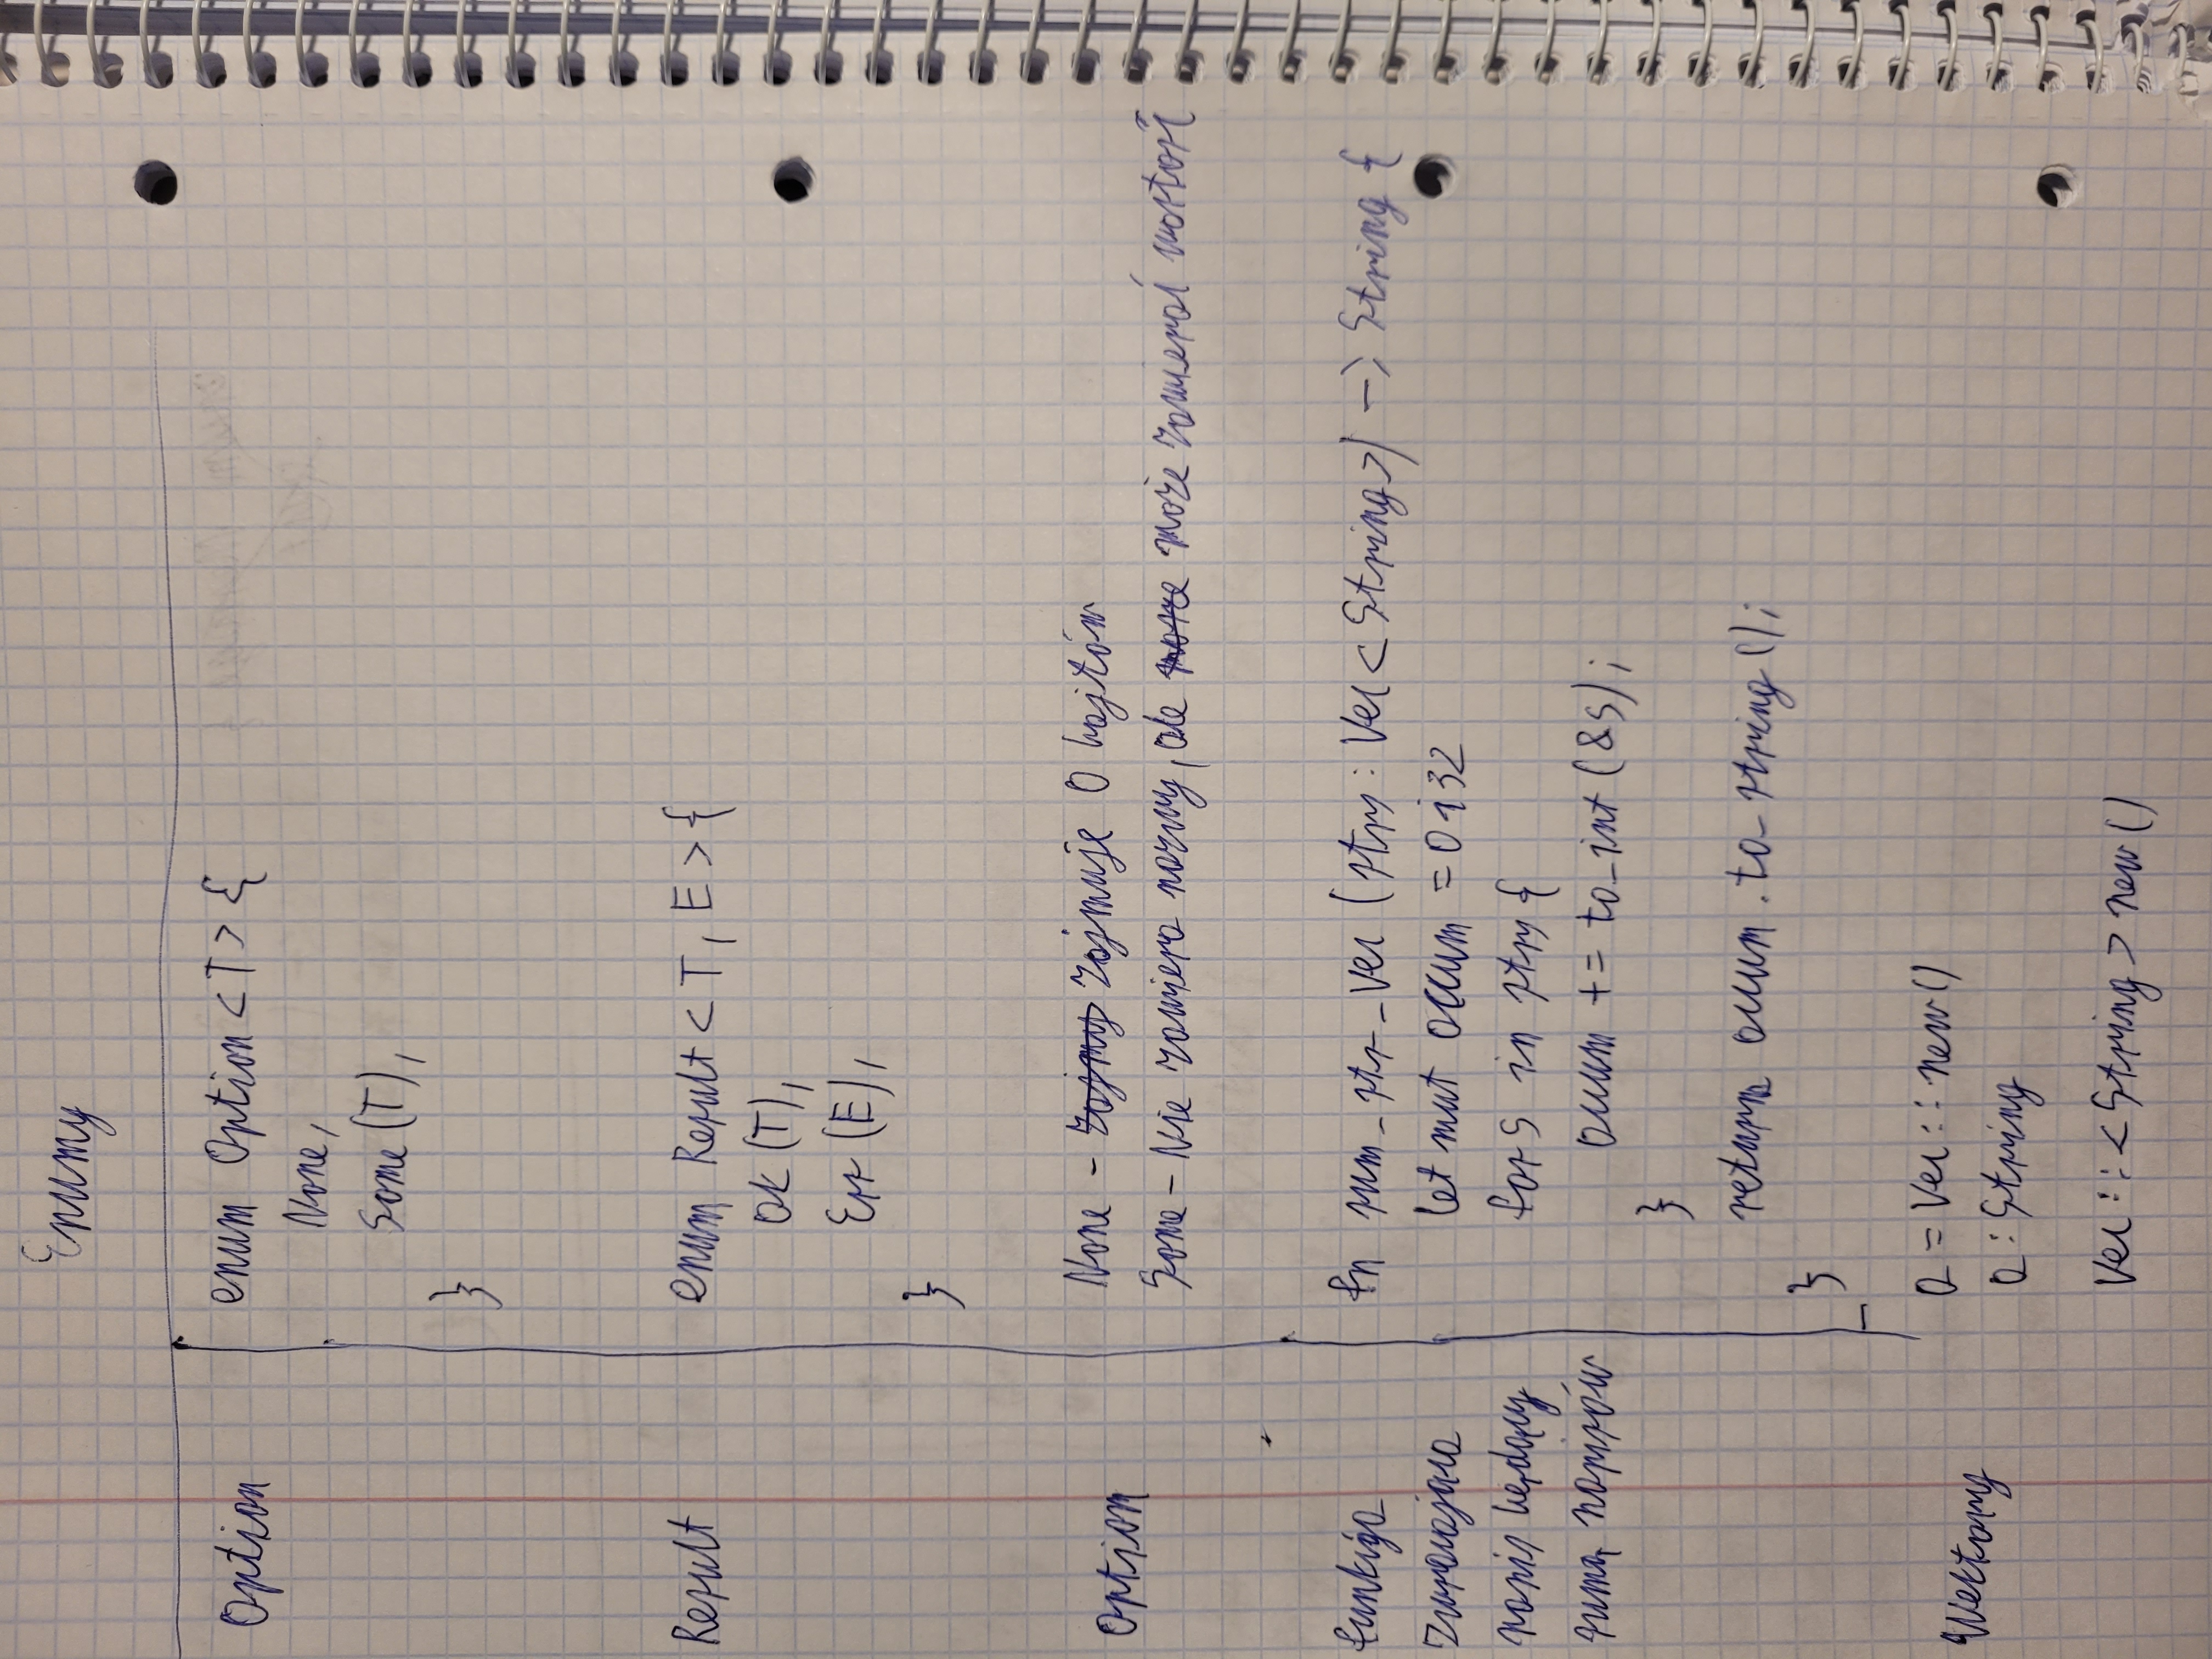 Enumy
Option
enum Option<T>{
None,
Some(T),
}
Result
enum Result<T, E>{
Ok(T),
Err(E),
}
Option
None - zajmuje 0 bajtów
Some - Nie zawiera nazwy, ale może zawierać wartość
funkcja
zwracająca
napis będący
sumą napisów
fn sum_str_vec (strs: Vec<String>) -> String {
let mut accum = 0i32
for s in strs {
accum += to_int(&s);
}
return accum.to_string();
}
Wektory
a = Vec::new()
a: String
Vec::<String>new()